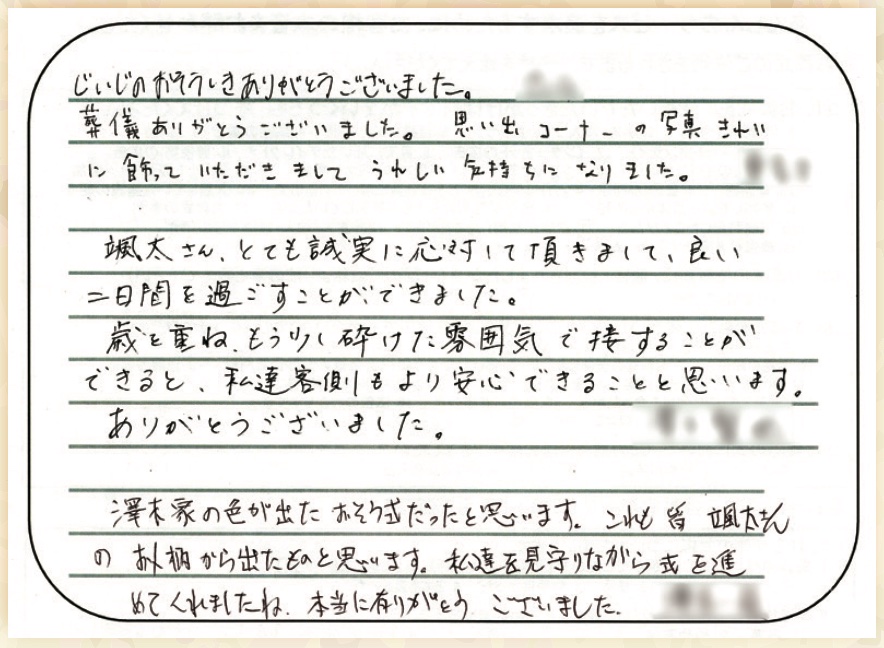 じいじのおそうしきありがとうございました。
葬儀ありがとうございました。 思い出コーナーの写真きれい
に飾っていただきましてうれしい気持ちになりました。
颯太さん、とても誠実に応対して頂きまして、良い
二日間を過ごすことができました。
歳を重ね、もう少し砕けた雰囲気で接することが
できると、私達客側もより安心できることと思います。
ありがとうございました。
澤木家の色が出たおそう式だったと思います。これも皆颯太さん
のお人柄から出たものと思います。私達を見守りながら式を進
めてくれましたね。本当に有りがとうございました。